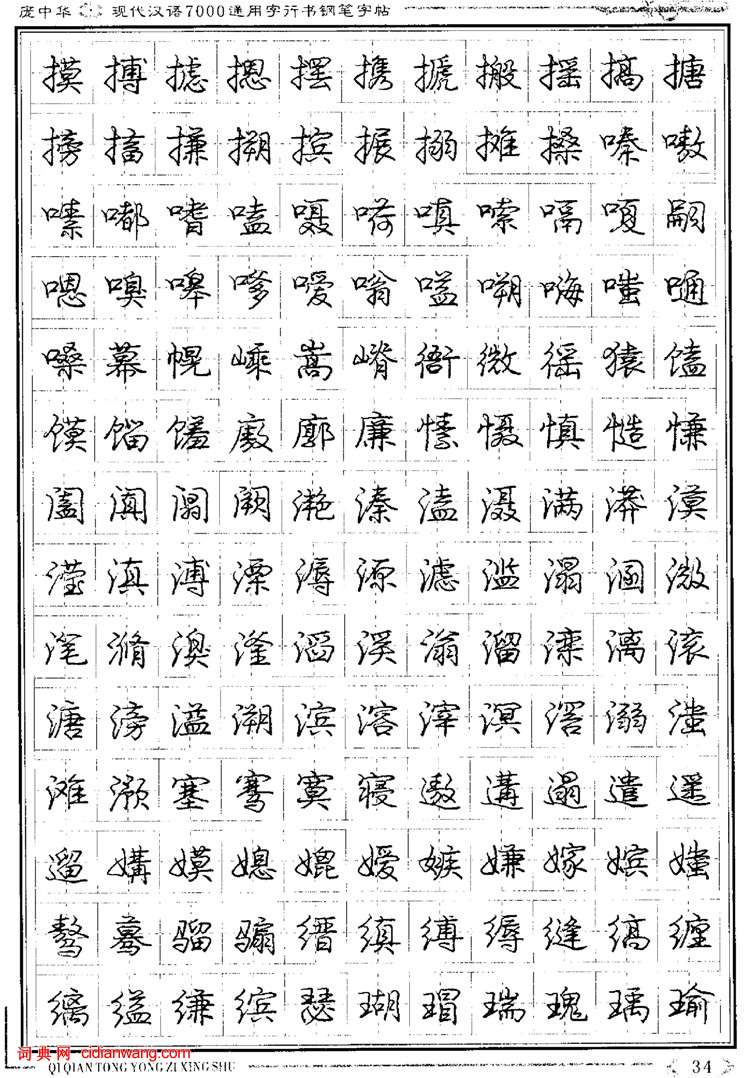 庞中华 现代汉语7000通用字行书钢笔字帖
摸搏摅摁摆携搋搬摇搞搪
搒搐搛搠摈搌搦摊搡嗪嗷
嗉嘟嗜嗑嗫嗬嗔嗦嗝嗄嗣
嗯嗅嗥嗲嗳嗡嗌嗍嗨嗤嗵
嗓幕幌嵊嵩嵴衙微徭猿馌
馍馏馐廒廓廉愫慑慎慥慊
阖阗阘阙滟溱溘滠满漭漠
滢滇溥溧溽源滤滥溻溷溦
滗滫溴滏滔溪滃溜滦漓滚
溏滂溢溯滨溶滓溟滘溺滍
滩滪塞骞寞寝遨遘遢遣遥
遛媾嫫媳媲嫒嫉嫌嫁嫔媸
骜蓦骝骟缙缜缚缛缝缟缠
缡缢缣缤瑟瑚瑁瑞瑰瑀瑜
词典网 cidianwang.com
QI QIAN TONG YONG ZI XING SHU 34